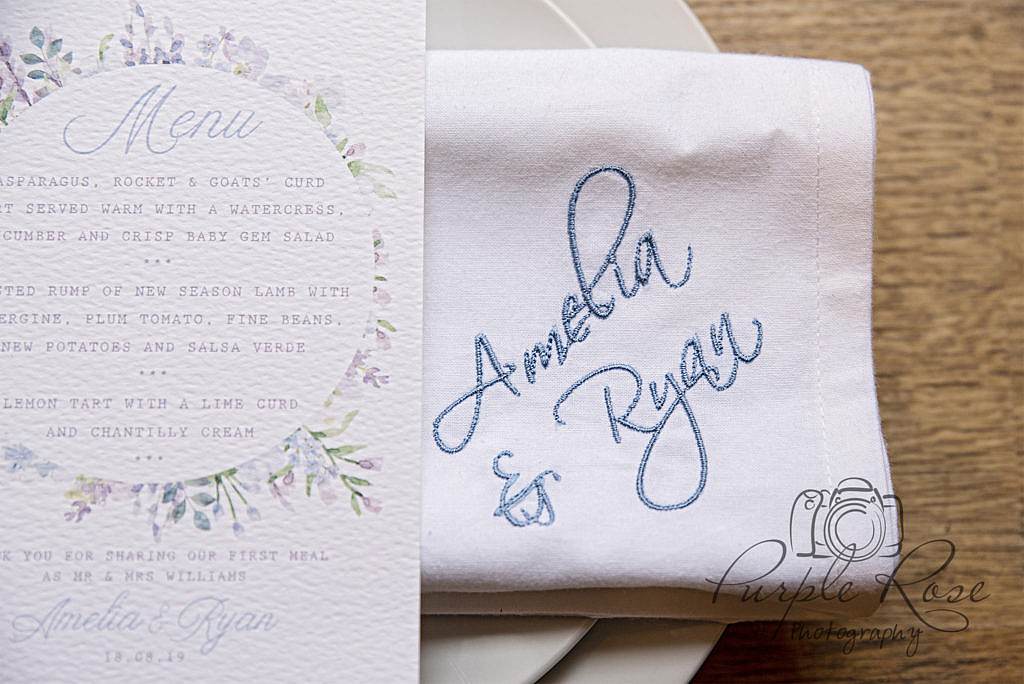 Menu
ASPARAGUS, ROCKET & GOATS' CURD
SERVED WARM WITH A WATERCRESS,
CUMBER AND CRISP BABY GEM SALAD
***
STED RUMP OF NEW SEASON LAMB WITH
ERGINE, PLUM TOMATO, FINE BEANS,
NEW POTATOES AND SALSA VERDE
***
LEMON TART WITH A LIME CURD
AND CHANTILLY CREAM
YOU FOR SHARING OUR FIRST MEAL
AS MR & MRS WILLIAMS
Amelia & Ryan
18.08.19
Amelia
& Ryan
Purple Rose
Photography